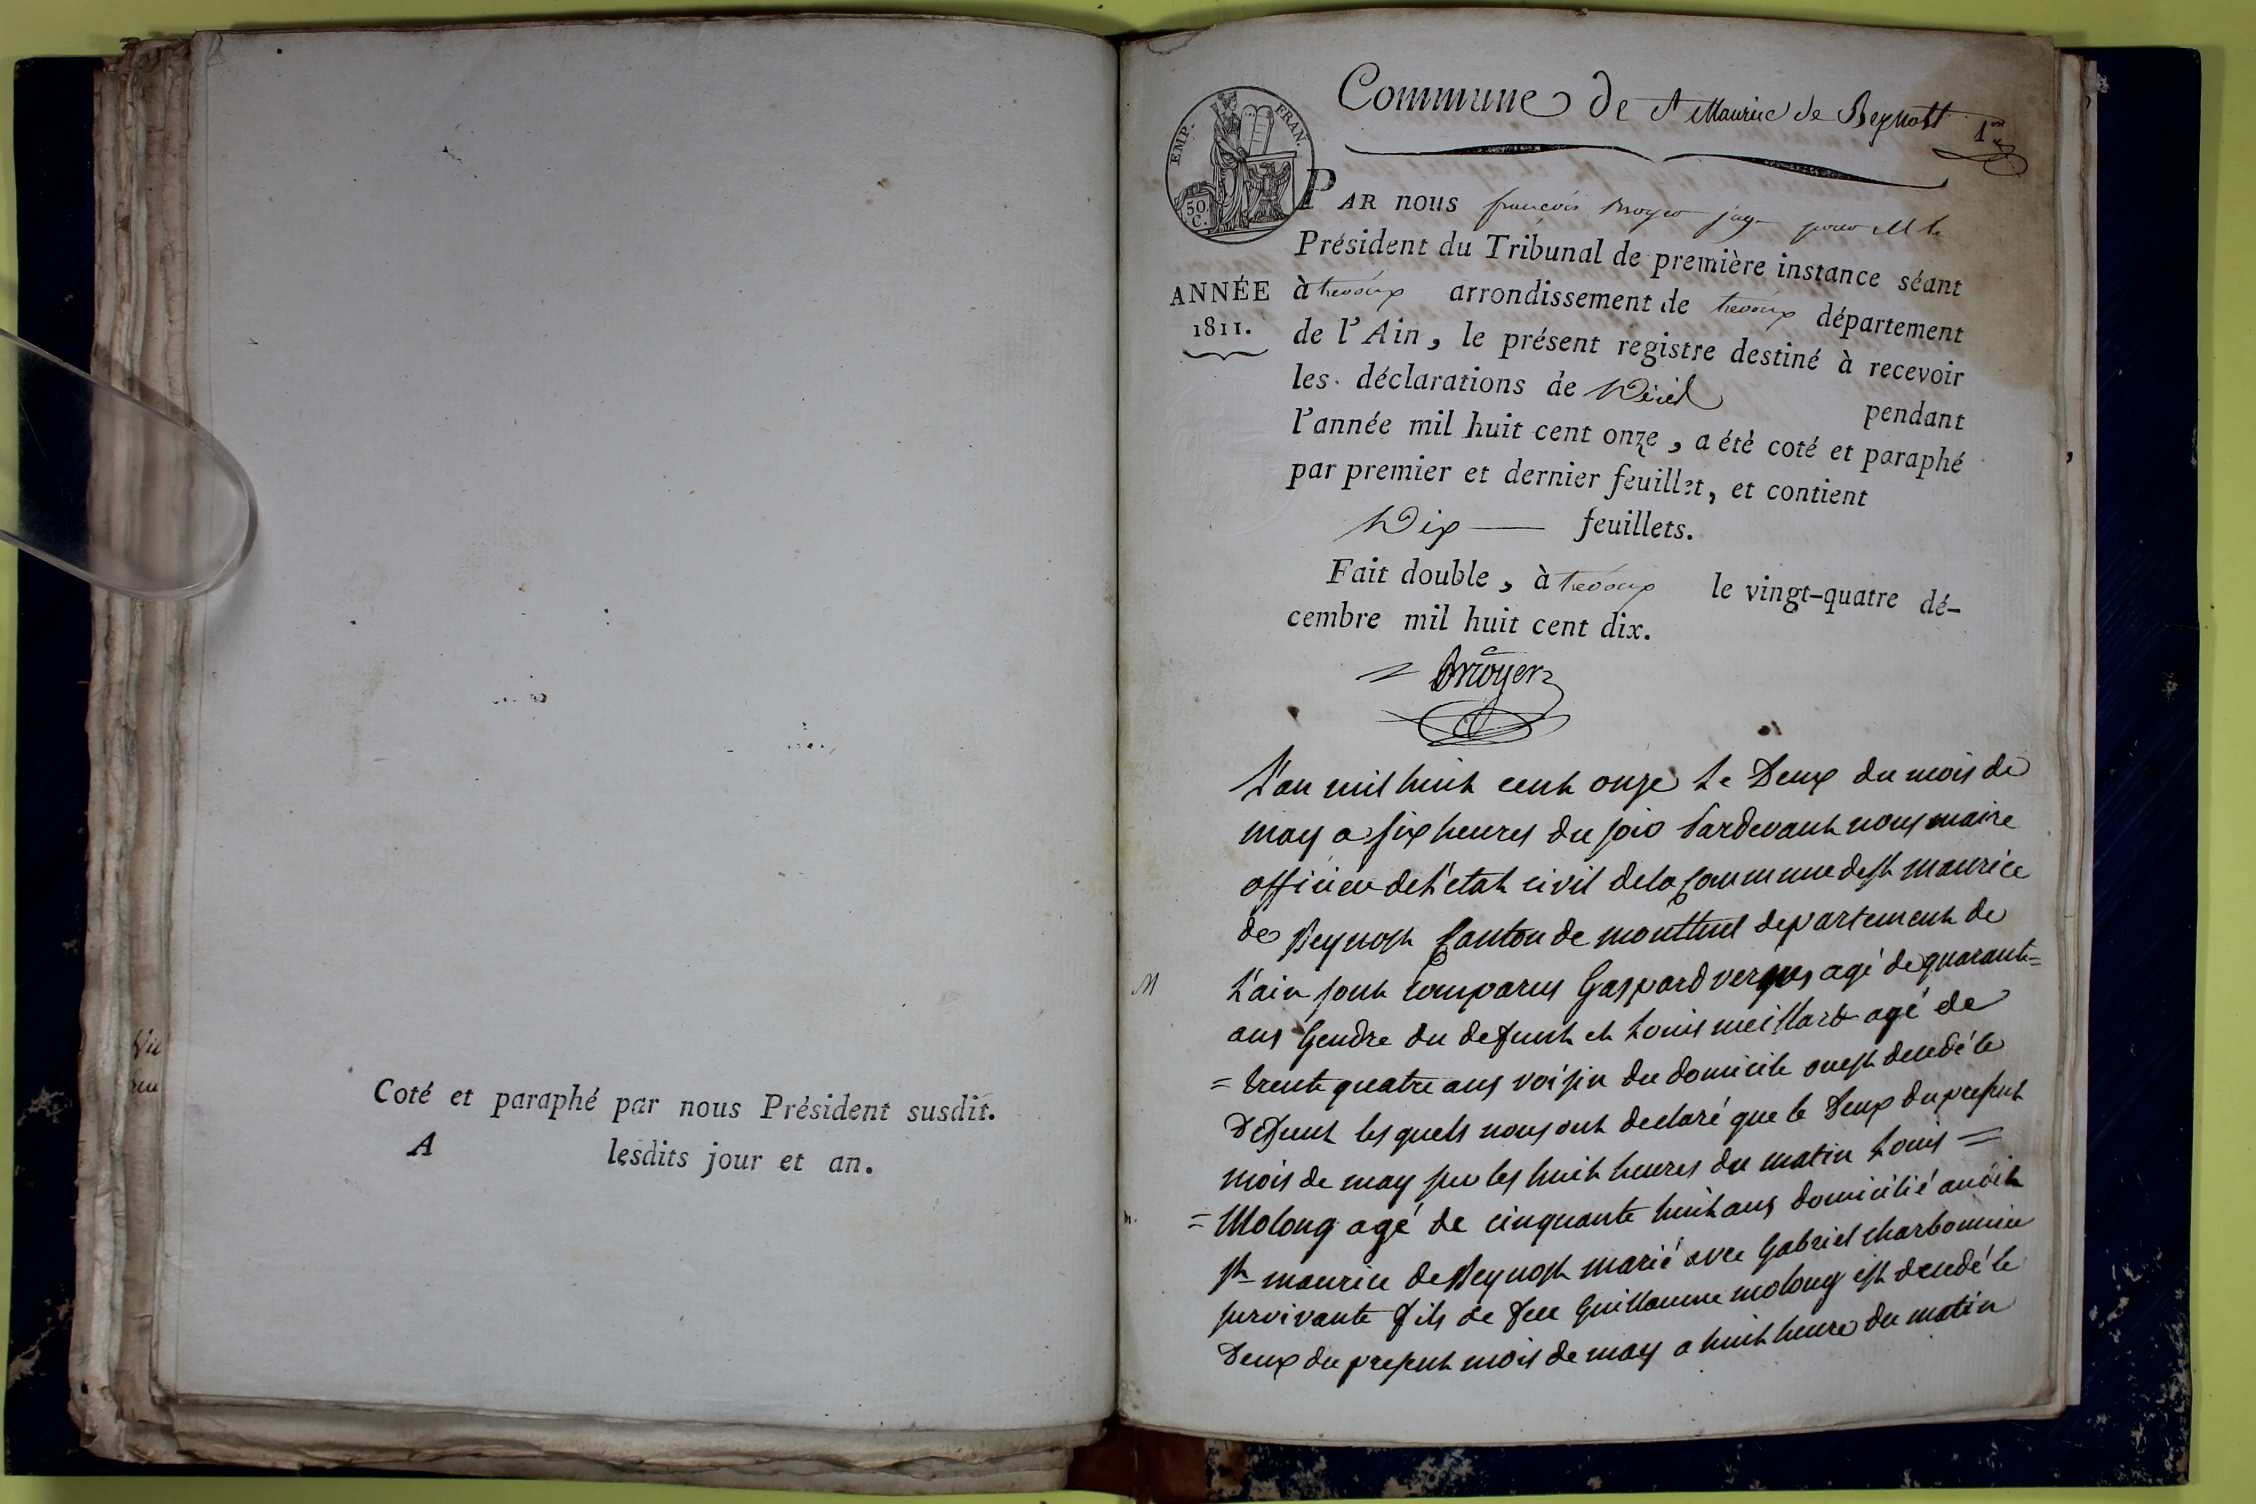 Coté et paraphé par nous Président susdit.
A lesdits jour et an.
Commune de St Maurice de Beynost 1er
EMP. FRAN.
50 C.
ANNÉE
1811.
PAR nous françois pour M le
Président du Tribunal de première instance séant
à trevoux arrondissement de trevoux département
de l'Ain, le présent registre destiné à recevoir
les déclarations de Décès pendant
l'année mil huit cent onze, a été coté et paraphé
par premier et dernier feuillet, et contient
Dix feuillets.
Fait double, à trevoux le vingt-quatre dé-
cembre mil huit cent dix.
L'an mil huit cent onze Le Deux du mois de
may a six heures du soir Pardevant nous maire
officier de L'etat civil de la Commune de St maurice
de Beynost Canton de montluel departement de
L'ain sont comparus Gaspard agé de quarante=
ans Gendre du defunt et Louis meillard agé de
=trente quatre ans voisin du domicile ou est decedé le
Defunt lesquels nous ont declaré que le Deux du present
mois de may sur les huit heures du matin Louis =
=Molong agé de cinquante huit ans domicilié audit
St maurice de Beynost marié avec Gabriel charbonnier
survivante fils de feu Guillaume molong est decedé le
Deux du present mois de may a huit heure du matin